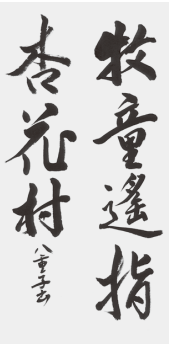 牧童遙指
杏花村
八童子書